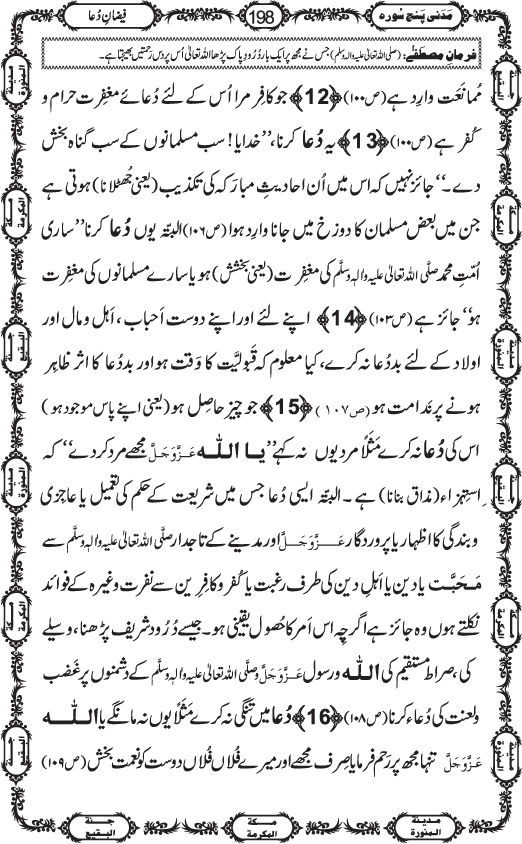 مَدَنی پَنج سُورہ 198 فیضانِ دُعا
فرمانِ مصطفٰے: (صلی اللہ تعالیٰ علیہ والہٖ وسلم) جس نے مجھ پر ایک بار دُرُودِ پاک پڑھا اللہ تعالیٰ اُس پر دس رحمتیں بھیجتا ہے۔
مُمانَعَت وارِد ہے (ص۱۰۰) ﴿12﴾ جو کافِر مرا اُس کے لئے دُعائے مغفِرت حرام و
کُفر ہے (ص۱۰۰) ﴿13﴾ یہ دُعا کرنا، ’’خدایا! سب مسلمانوں کے سب گناہ بخش
دے۔‘‘ جائز نہیں کہ اس میں اُن احادیثِ مبارَکہ کی تکذیب (یعنی جُھٹلانا) ہوتی ہے
جن میں بعض مسلمان کا دوزخ میں جانا وارِد ہوا (ص۱۰۶) البتّہ یوں دُعا کرنا ’’ساری
اُمّتِ محمد صلَّی اللہ تعالیٰ علیہ والہٖ وسلَّم کی مغفِرت (یعنی بخشِش) ہو یا سارے مسلمانوں کی مغفِرت
ہو‘‘ جائز ہے (ص۱۰۳) ﴿14﴾ اپنے لئے اور اپنے دوست اَحباب، اَہل و مال اور
اولاد کے لئے بددُعا نہ کرے، کیا معلوم کہ قَبولیَّت کا وَقت ہو اور بددُعا کا اثر ظاہِر
ہونے پر نَدامت ہو (ص۱۰۷) ﴿15﴾ جو چیز حاصِل ہو (یعنی اپنے پاس موجود ہو)
اس کی دُعا نہ کرے مَثَلاً مرد یوں نہ کہے ’’یا اللہ عَزَّوَجَلَّ مجھے مرد کردے‘‘ کہ
اِستِہزاء (مذاق بنانا) ہے۔ البتّہ ایسی دُعا جس میں شریعت کے حکم کی تعمیل یا عاجِزی
و بندگی کا اظہار یا پروردگار عَزَّوَجَلَّ اور مدینے کے تاجدار صلَّی اللہ تعالیٰ علیہ والہٖ وسلَّم سے
مَحَبَّت یا دین یا اہلِ دین کی طرف رغبت یا کُفر و کافِرین سے نفرت وغیرہ کے فوائد
نکلتے ہوں وہ جائز ہے اگرچِہ اس اَمر کا حُصول یقینی ہو۔ جیسے دُرُود شریف پڑھنا، وسیلے
کی، صراطِ مستقیم کی اللہ و رسول عَزَّوَجَلَّ وصلَّی اللہ تعالیٰ علیہ والہٖ وسلَّم کے دشمنوں پر غَضَب
و لعنت کی دُعاء کرنا (ص۱۰۸) ﴿16﴾ دُعا میں تنگی نہ کرے مَثَلاً یوں نہ مانگے یا اللہ
عَزَّوَجَلَّ تنہا مجھ پر رَحم فرما یا صِرف مجھے اور میرے فُلاں فُلاں دوست کو نعمت بخش (ص۱۰۹)
مدینۃ المنورۃ
مکۃ المکرمۃ
جنۃ البقیع
مدینۃ المنورۃ
مکۃ المکرمۃ
جنۃ البقیع
جنۃ البقیع
مکۃ المکرمۃ
مدینۃ المنورۃ
جنۃ البقیع
مکۃ المکرمۃ
مدینۃ المنورۃ
جنۃ البقیع
مکۃ المکرمۃ
مدینۃ المنورۃ